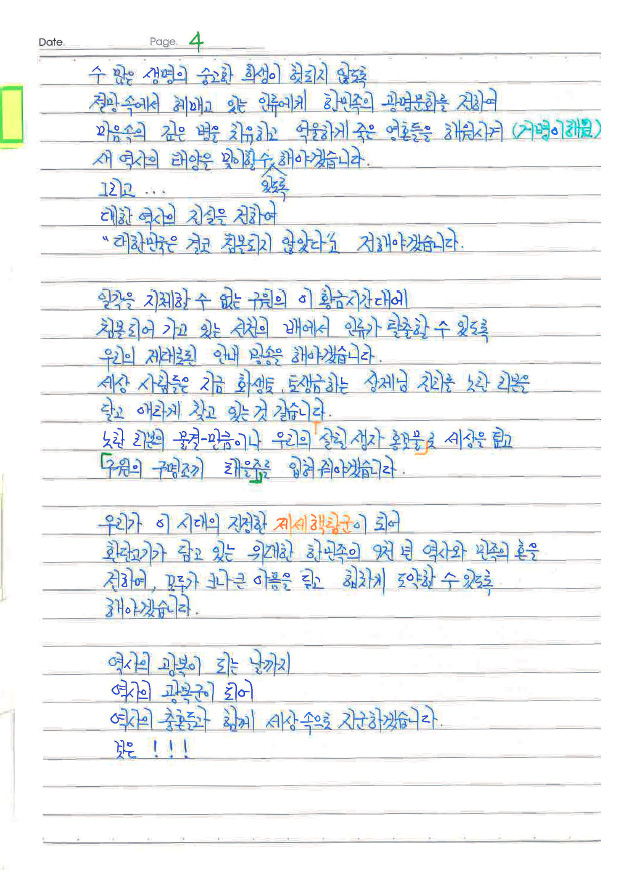 Date. Page. 4
수 많은 생명의 숭고한 희생이 헛되지 않도록
절망속에서 헤매고 있는 인류에게 한민족의 광명문화를 전하여
마음속의 깊은 병을 치유하고 억울하게 죽은 영혼들을 해원시켜
새 역사의 태양을 맞이할 수 있도록 해야겠습니다.
그리고 ...
대한 역사의 진실을 전하여
"대한민국은 결코 침몰되지 않았다"고 전해야겠습니다.
일각을 지체할 수 없는 구원의 이 황금시간대에
침몰되어 가고 있는 선천의 배에서 인류가 탈출할 수 있도록
우리의 제대로된 안내 방송을 해야겠습니다.
세상 사람들은 지금 화생토, 토생금하는 상제님 진리를 노란 리본을
달고 애타게 찾고 있는 것 같습니다.
노란 리본의 물결-만큼이나 우리의 「살릴 생자 홍보물」로 세상을 덮고
「구원의 구명조끼 태을주」를 입혀 줘야겠습니다.
우리가 이 시대의 진정한 제세핵랑군이 되어
환단고기가 담고 있는 위대한 한민족의 9천 년 역사와 민족의 혼을
전하여, 모두가 크나큰 아픔을 딛고 힘차게 도약할 수 있도록
해야겠습니다.
역사의 광복이 되는 날까지
역사의 광복군이 되어
역사의 충혼들과 함께 세상속으로 진군하겠습니다.
보은 ! ! !